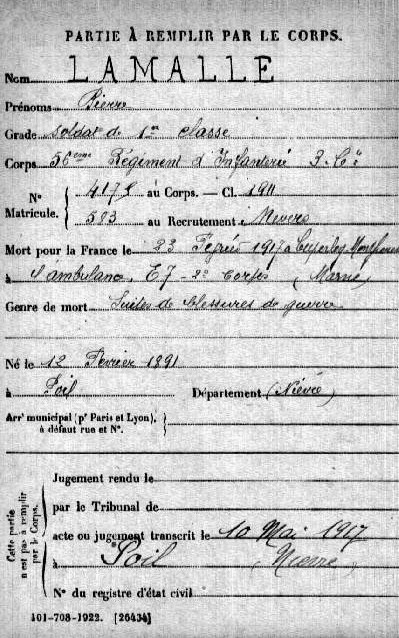 PARTIE À REMPLIR PAR LE CORPS.
Nom LAMALLE
Prénoms Pierre
Grade soldat de 1re classe
Corps 56eme Régiment d'Infanterie 3. Cie
No Matricule. { 4175 au Corps. — Cl. 1911
{ 583 au Recrutement Nevers
Mort pour la France le 23 1917 à Cuperly
à l'ambulance. E7 - 2e Corps (Marne)
Genre de mort Suites de blessures de guerre
Né le 12 Fevrier 1891
à Poil Département (Nièvre)
Arrt municipal (pr Paris et Lyon), }
à défaut rue et No. }
Cette partie n'est pas à remplir par le Corps.
Jugement rendu le
par le Tribunal de
acte ou jugement transcrit le 10 Mai 1917
à Poil (Nièvre)
No du registre d'état civil
101-708-1922. [26434]